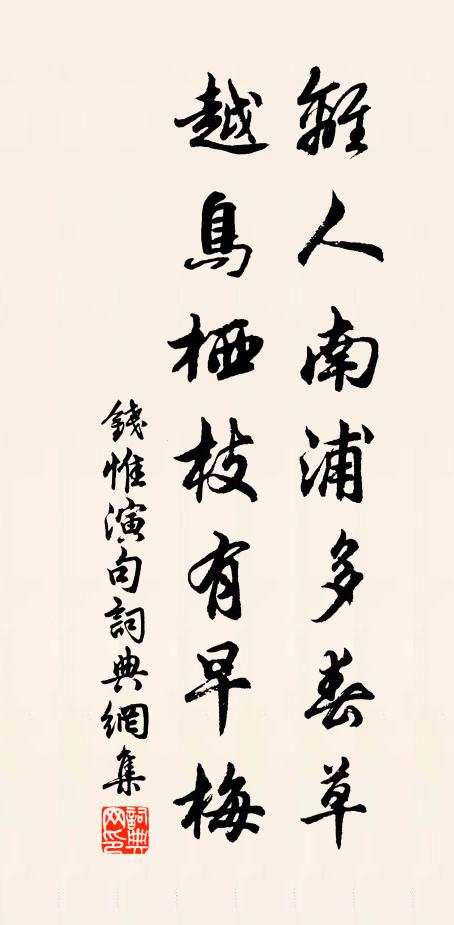 離人南浦多春草
越鳥栖枝有早梅
錢惟演句詞典網集
詞典網印